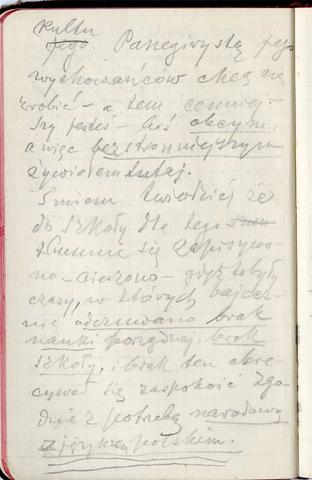 kultu
jego. Panegirystą jego
wychowańców chcą cię
zrobić – a tem cenniej
żeś obcym,
a więc bezstronniejszym
żywiołem tutaj.
Śmiem twierdzić że
do szkoły dla tego
tłumnie się zapisywa-
no – cieszono – gdyż to były
czasy, w których bajecz-
nie odczuwano brak
nauki porządnej, brak
szkoły, i brak ten obie-
cywał się zaspokoić zgo-
dnie z potrzebą narodową
z językiem polskim.